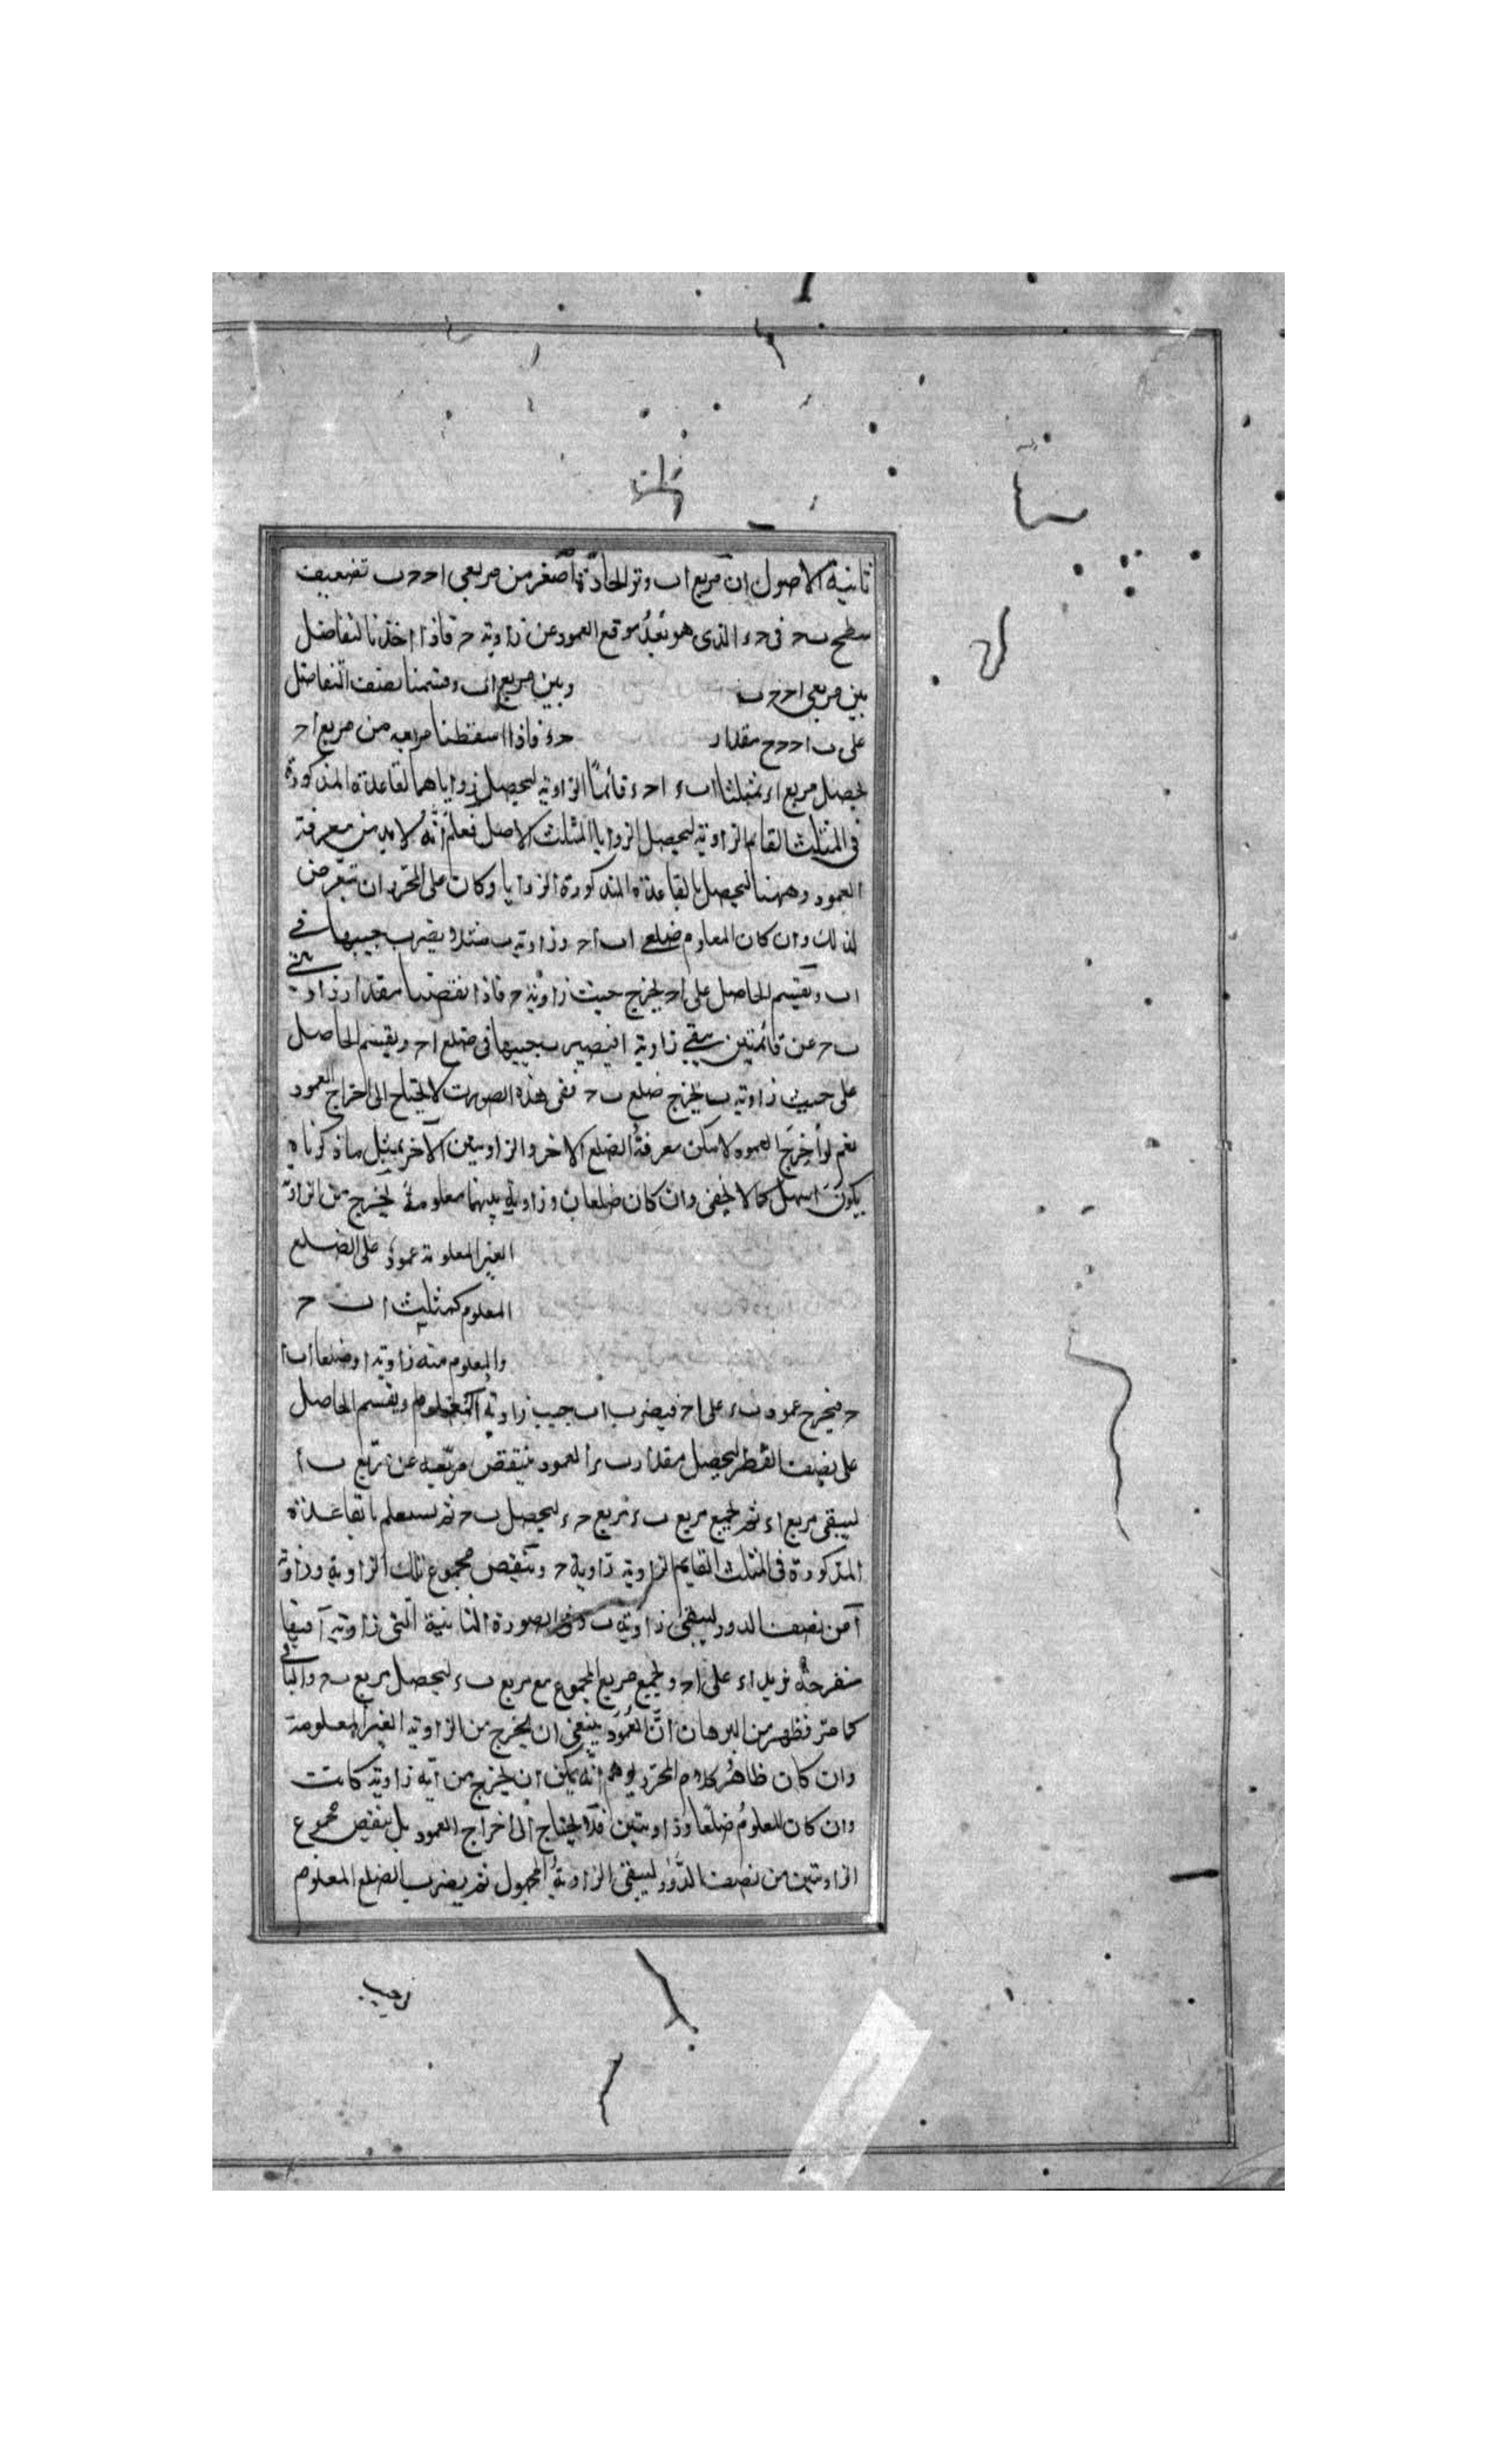 ثانية الاصول ان مربع اب وتر الحادة اصغر من مربعى اح حب تضعيف
سطح بح فى حء الذى هو بُعدُ موقع العمود عن زاوية ح فاذا اخذنا التفاضل
بين مربعى اح حب وبين مربع اب وقسمنا نصف التفاضل
على ب مقدار حء فاذا اسقطنا مربعه من مربع اح
يحصل مربع اء فمثلثا ابء احء قائمًا الزاوية ليحصل زواياهما لقاعدة المذكورة
فى المثلث القايم الزاوية ليحصل الزوايا المثلث الاصل فعلم انّه لا بد من معرفة
العمود وههنا ليحصل بالقاعدة المذكورة الزوايا وكان على المحرر ان يتعرض
لذلك وان كان المعلوم ضلعى اب اح وزاوية ب مثلا يضرب جيبها فى
اب ويقسم الحاصل على اح ليخرج جيب زاوية ح فاذا نقصنا مقدار زاويتى
ب ح عن قائمتين يبقى زاوية ا فيضرب جيبها فى ضلع اح ويقسم الحاصل
على جيب زاوية ب يخرج ضلع بح ففى هذه الصورت لا يحتاج الى اخراج العمود
نعم لو اُخرِجَ العمود لامكن معرفةُ الضلع الاخر والزاويتين الآخر بمثل ما ذكرناه
يكون اسهل كما لا يخفى وان كان ضلعان وزاوية بينهما معلومة يخرج من الزاوية
الغير المعلومة عمود على الضلع
المعلوم كمثلث اب ح
والمعلوم منه زاوية ا وضلعا اب ا
ح فيخرج عمود بء على اح فيضرب اب جيب زاوية المعلوم ويقسم الحاصل
على نصف القطر ليحصل مقدار ب العمود فينقص مربعه عن مربع ب ا
ليبقى مربع اء ثم يجمع مربع بء مربع حء ليحصل بح ثم يستعلم بالقاعدة
المذكورة فى المثلث القايم الزاوية زاوية ح وينقص مجموع تلك الزاوية وزاوية
آ من نصف الدور ليبقى زاوية ب وفى الصورة الثانية التى زاوية آ فيها
منفرجة نزيد اء على اح ويجمع مربع المجموع مع مربع بء ليحصل مربع بح والباقى
كما مر فظهر من البرهان انّ العُمود ينبغى ان يخرج من الزاوية الغير المعلومة
وان كان ظاهر كلام المحرر يوهم انّه يمكن ان يخرج من ايه زاوية كانت
وان كان المعلوم ضلعًا وزاويتين فلا يحتاج الى اخراج العمود بل ينقص مجموع
الزاويتين من نصف الدَّور ليبقى الزاويةُ المجهول ثم يضرب الضلع المعلوم